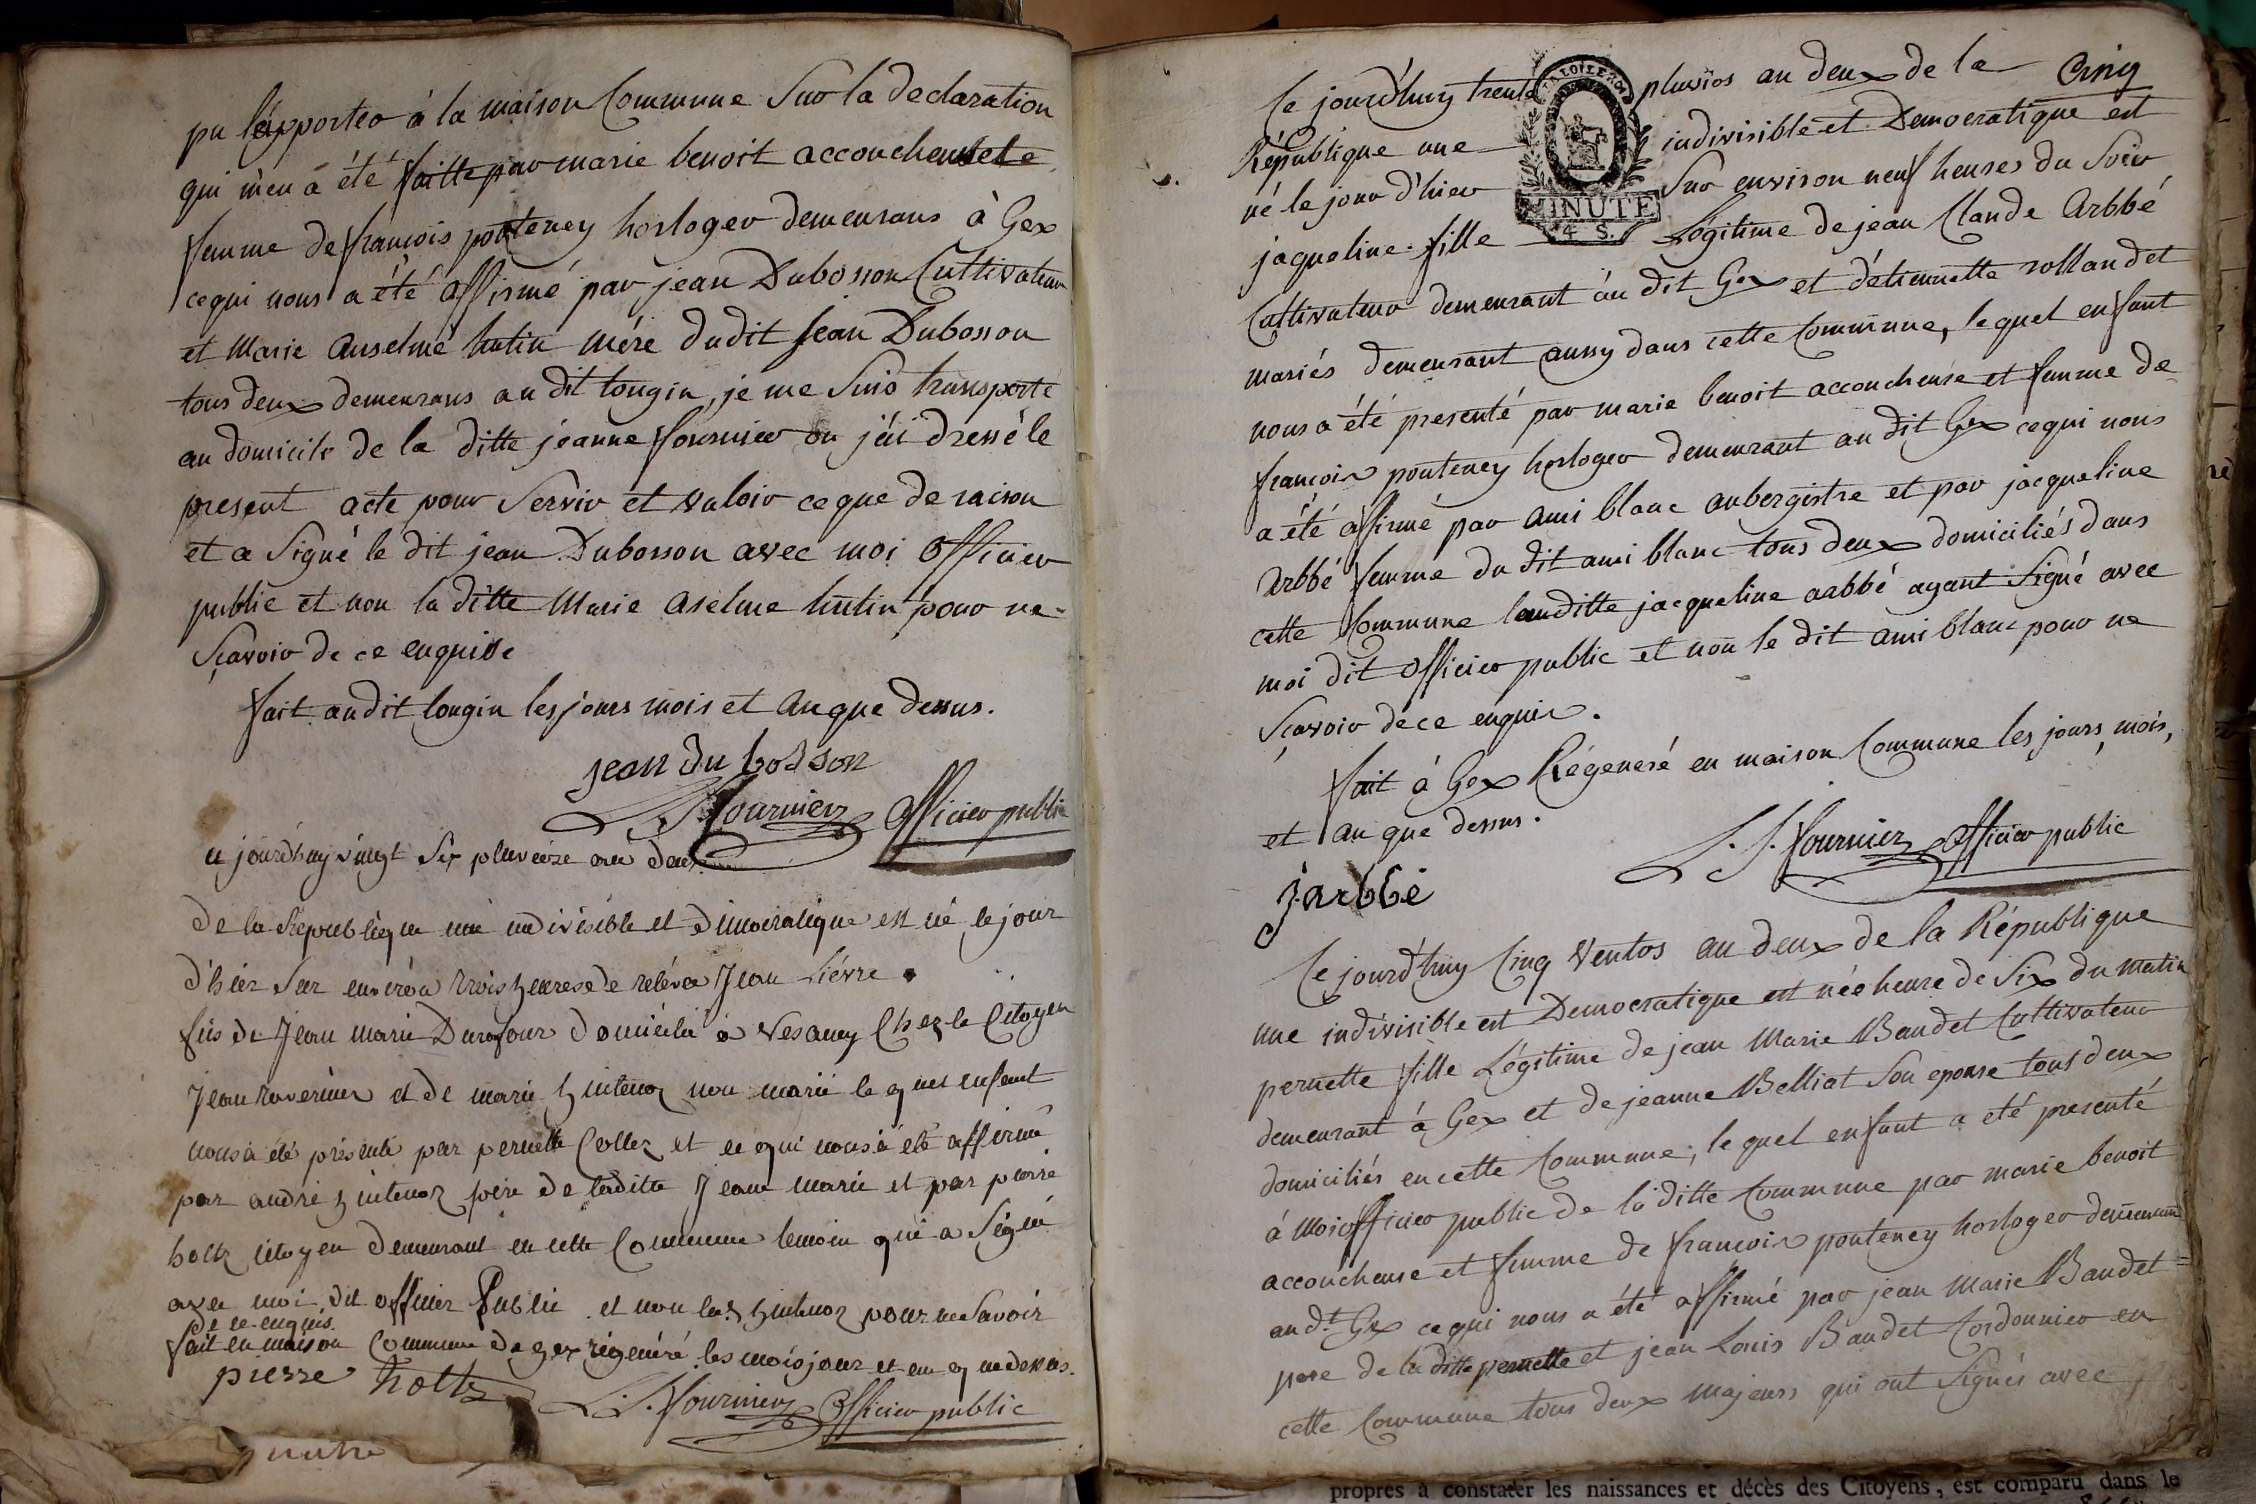 pu l'apporter à la maison Commune Sur la declaration
qui m'en a été faitte par marie benoit accoucheuse
femme de françois ponteney horloger demeurans à Gex
cequi nous a été affirmé par jean Dubosson Cultivateur
et Marie Anselme hutin mére dudit Jean Dubosson
tous deux demeurans au dit tougin, je me Suis transporté
au domicile de la ditte jeanne fournier ou j'ai dressé le
present acte pour Servir et valoir ce que de raison
et a Signé le dit jean Dubosson avec moi Officier
public et non la ditte Marie Aselme hutin pour ne
Sçavoir de ce enquise
fait audit tougin les jours mois et an que dessus.
jean du bosson
L. J. fournier officier public
ce jourd'huy vingt Six pluviose an deux
de la République une indivisible et dimocratique est né le jour
d'hier Sur environ trois heures de relévée Jean Liévre
fils de Jean marie Durafour domicilié à Vesancy Chez le Citoyen
Jean et de marie non marié le quel enfant
nous à été présenté par pernette Collez et ce qui nous à été affirmé
par andré pére de laditte Jeane marie et par pierre
holtz citoyen demeurant en cette Commune temoin qui a Signé
avec moi dit officier Public et non pour ne Savoir
de ce enquis.
fait en maison Commune de gex régénéré les mois jour et an que dessus.
pierre holtz L. J. fournier Officier public
quatre
Cinq
Ce jourd'huy trente pluvios an deux de la
République une indivisible et Democratique est
né le jour d'hier Sur environ neuf heures du Soir
jaqueline fille Légitime de jean Claude Arbbé
MINUTE
4 S.
Cultivateur demeurant au dit Gex et d'étiennette rollandet
mariés demeurant aussy dans cette Commune, lequel enfant
nous a été presenté par marie benoit accoucheuse et femme de
françois ponteney horloger demeurant au dit Gex cequi nous
a été affirmé par ami blanc aubergistre et par jacqueline
Arbbé femme du dit ami blanc tous deux domiciliés dans
cette Commune laditte jacqueline arbbé ayant Signé avec
moi dit officier public et non le dit ami blanc pour ne
Sçavoir de ce enquis.
fait à Gex Régeneré en maison Commune les jours, mois,
et an que dessus.
L. J. fournier officier public
j. arbbé
Ce jourd'huy Cinq Ventos an deux de la République
une indivisible et Democratique est née heure de Six du matin
pernette fille Légitime de jean Marie Baudet Cultivateur
demeurant à Gex et de jeanne Belliat Son epouse tous deux
domiciliés en cette Commune, lequel enfant a eté presenté
à Moi officier public de la ditte Commune par marie benoit
accoucheuse et femme de françois ponteney horloger demeurant
aud.t Gex ce qui nous a été affirmé par jean Marie Baudet
pere de la ditte pernette et jean Louis Baudet Cordonnier en
cette Commune tous deux Majeurs qui ont Signés avec
propres à constater les naissances et décès des Citoyens, est comparu dans le